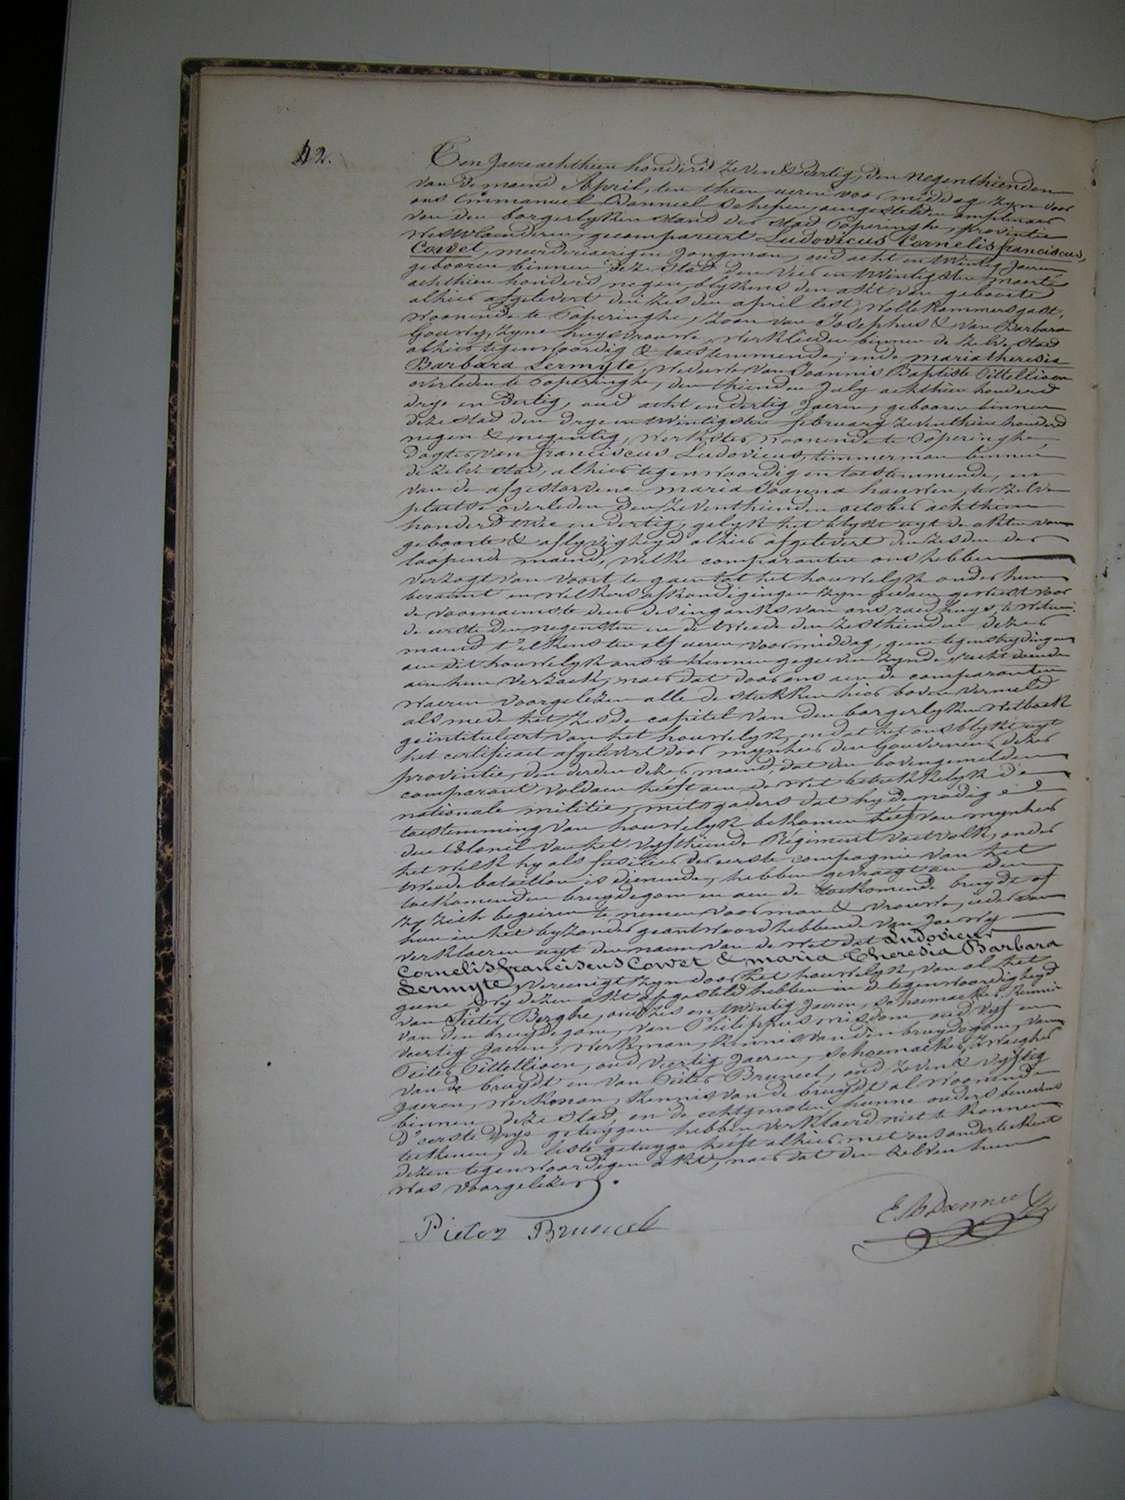 42.
Ten Jaere achthien honderd Zeven & dertig, den negenthienden
van de maend April, ten thien ueren voor middag, zyn voor
ons Emmanuel Danneel Schepen, aengestelden amptenaer
van den borgerlyken stand der stad Poperinghe, provintie
WestVlaenderen, gecompareert Ludovicus Cornelis franciscus,
Cowet, meerderjaerigen Jongman, oud acht en Twintig Jaeren
gebooren binnen deze stad den Vier en Twintigsten maerte
achthien honderd negen, blykens den akt van geboorte
alhier afgelevert den zesden april lest, Wollekammersgast,
Woonende te Poperinghe, Zoon van Josephus & van Barbara
Gouwy, Zyne huysvrouwe, Werklieden binnen de Zelve Stad
alhier tegenwoordig & toestemmende; ende maria theresia
Barbara Lermyte, Weduwe van Joannis Baptiste Tittellioen
overleden te Poperinghe, den thienden July achthien honderd
drye en dertig, oud acht en dertig Jaeren, gebooren binnen
deze stad den drye en Twintigsten february Zeventhien honderd
negen & negentig, Werkster, Woonende te Poperinghe,
Dogter van franciscus Ludovicus, timmerman binnen
de Zelve stad, alhier tegenwoordig en toestemmende, en
van de afgestorvene maria Joanna hauwen, ter Zelve
plaetse overleden den Zeventhienden october achthien
honderd twee en dertig, gelyk het blykt uyt de akten van
geboorte & aflyvigheyd alhier afgelevert den zesden der
loopende maend, Welke comparanten ons hebben
verzogt van voort te gaen tot het houwelyk onder hun
beraemt en welkers afkondigingen zyn gedaen geweest voor
de voornaemste deur des ingangs van ons raedhuys, te weten:
de eerste den negensten en de tweede den zesthienden dezer
maend t'elkens ten elf ueren voormiddag, geene tegenstrydingen
aen dit houwelyk ons te kennen gegeven zynde, recht doende
aen hun verzoek, naer dat door ons aen de comparanten
waeren voorgelezen alle de stukken hier boven vermeld
als mede het zesde capitel van den borgerlyken Wetboek
geintituleert van het houwelyk, en dat het ons blykt uyt
het certificaet afgelevert door mynheer den Gouverneur dezer
provintie, den derden dezer maend, dat den bovengemelden
comparant voldaen heeft aen de Wet betrekkelyk de
nationale militie, mitsgaders dat hy de noodige
toestemming van houwelyk bekomen heeft van mynheer
den Colonel van het vyfthiende Regiment voetvolk, onder
het welk hy als fuselier der eerste compagnie van het
tweede bataillon is dienende, hebben gevraegt aen den
toekomenden bruydegom en aen de toekomende bruyd of
zy zich begeiren te nemen voor man & vrouwe, ieder van
hun in het byzonder geantwoord hebbende van Jae Wy
verklaeren uyt den naem van de wet dat Ludovicus
Cornelis franciscus Cowet & maria Theresia Barbara
Lermyte, vereenigt zyn door het houwelyk, van al het
geene Wy dezen akt opgesteld hebben in de tegenwoordigheyd
van Pieter Berghe, oud zes en twintig Jaeren, schoemaeker, kennis
van den bruydegom, van Philippus misdom, oud vyf en
veertig Jaeren, Werkman, kennis van den bruydegom, van
Pieter Tittellioen, oud veertig Jaeren, schoemaeker, Zwaegher
van de bruydt en van Pieter Bruneel, oud Zeven & vyftig
Jaeren, Werkman, kennis van de bruydt al woonende
binnen deze stad, en de echtgenoten hunne ouders benevens
d'eerste drye getuygen hebben verklaerd niet te konnen
teekenen, de leste getuyge heeft alhier met ons onderteekent
dezen tegenwoordigen akt, naer dat den zelven hun
was voorgelezen.
Pieter Bruneel
E. B Danneel